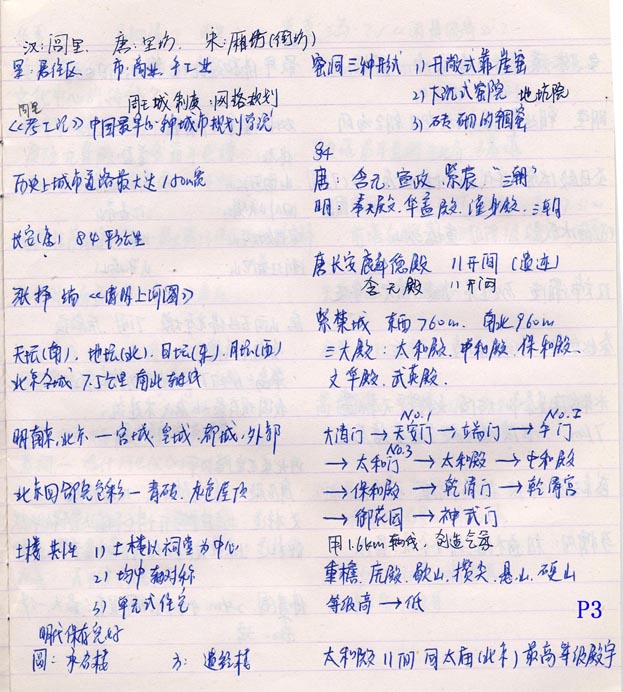 汉:闾里 唐:里坊 宋:厢坊(街坊)
里:居住区 市:商业,手工业
周王城制度:网格规划
《考工记》中国最早的一种城市规划学说
历史上城市道路最大达150m宽
长安(唐) 84平方公里
张择端《清明上河图》
天坛(南)、地坛(北)、日坛(东)、月坛(西)
北京全城 7.5公里南北轴线
明南京,北京—宫城,皇城,都城,外郭
北京四合院色彩—青砖,灰色屋顶
土楼共性 1)土楼以祠堂为中心
2)均中轴对称
3)单元式住宅
明代保存完好
圆:承启楼 方:遗经楼
窑洞三种形式 1)开敞式靠崖窑
2)下沉式窑院 地坑院
3)砖砌的锢窑
84
唐:含元 宣政 紫宸 "三朝"
明:奉天殿,华盖殿,谨身殿,三朝
唐长安麟德殿 11开间(遗迹)
含元殿 11开间
紫禁城 东西760m. 南北960m
三大殿:太和殿,中和殿 保和殿.
文华殿.武英殿.
No.1 No.2
大清门→天安门→端门→午门
No.3
→太和门→太和殿→中和殿
→保和殿→乾清门→乾清宫
→御花园→神武门
用1.6km轴线,创造气氛
重檐,庑殿,歇山,攒尖,悬山,硬山
等级高→低
P3
太和殿11间同太庙(北京)最高等级殿宇